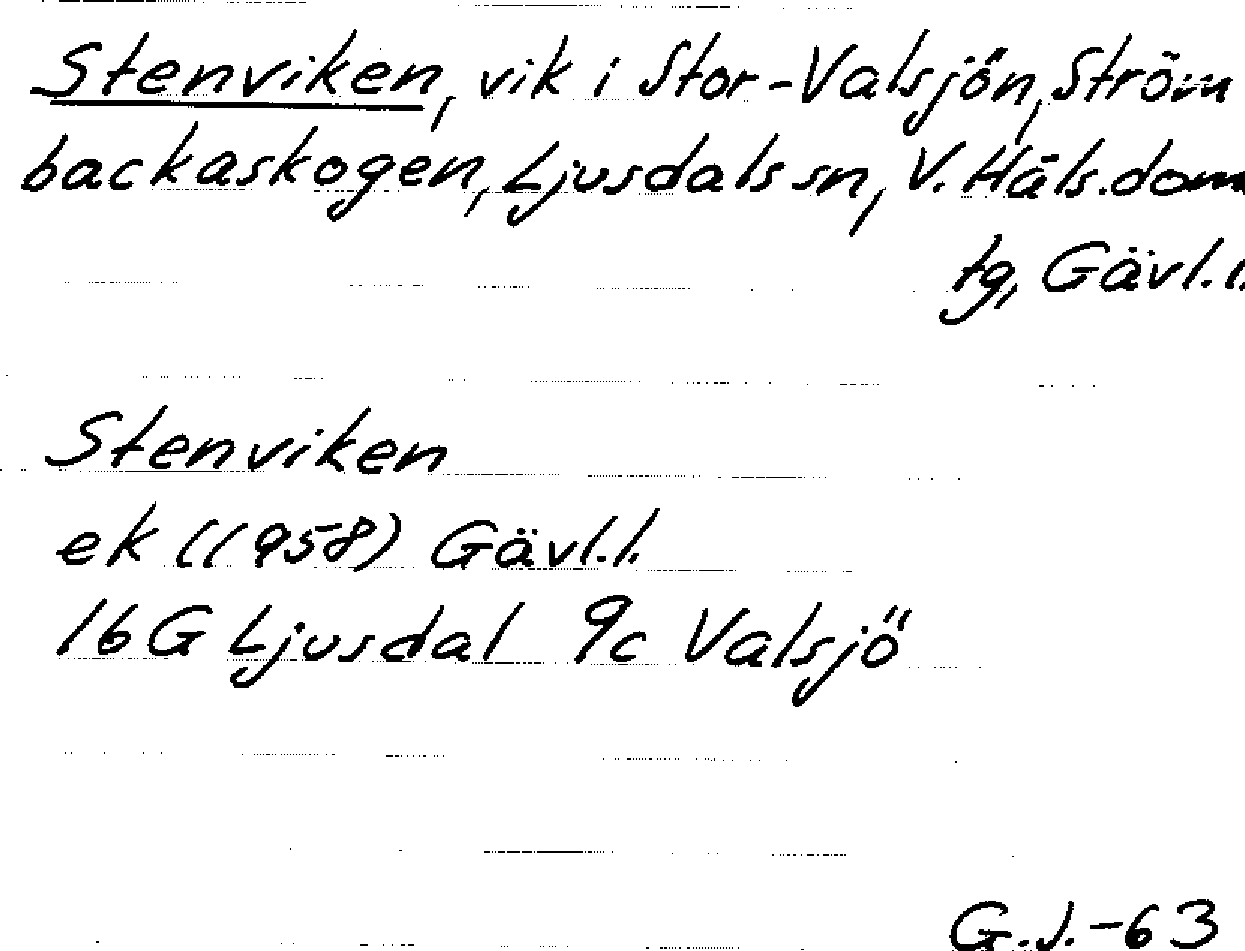 Stenviken, vik i Stor-Valsjön, Ström
backaskogen, Ljusdals sn, V. Häls. dom
tg, Gävl. l.
Stenviken
ek (1958) Gävl. l.
16G Ljusdal 9c Valsjö
G.J. -63